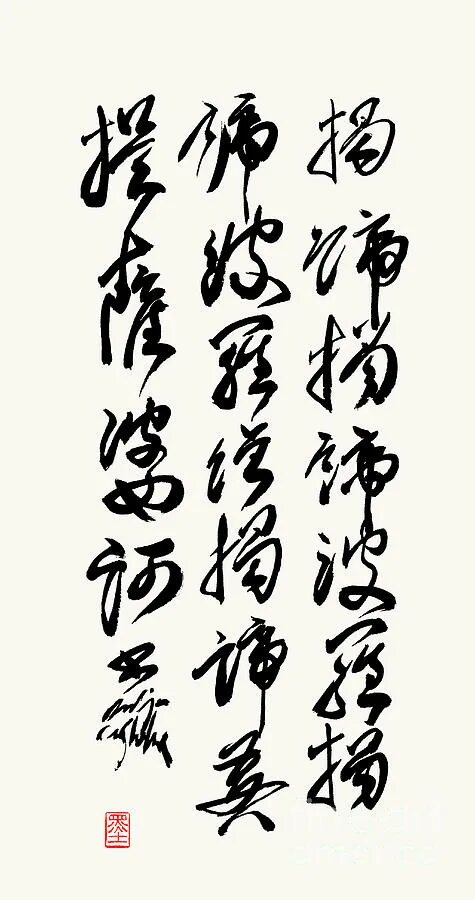 揭諦揭諦波羅揭
諦波羅僧揭諦菩
提薩婆訶 书
墨
fine art
america